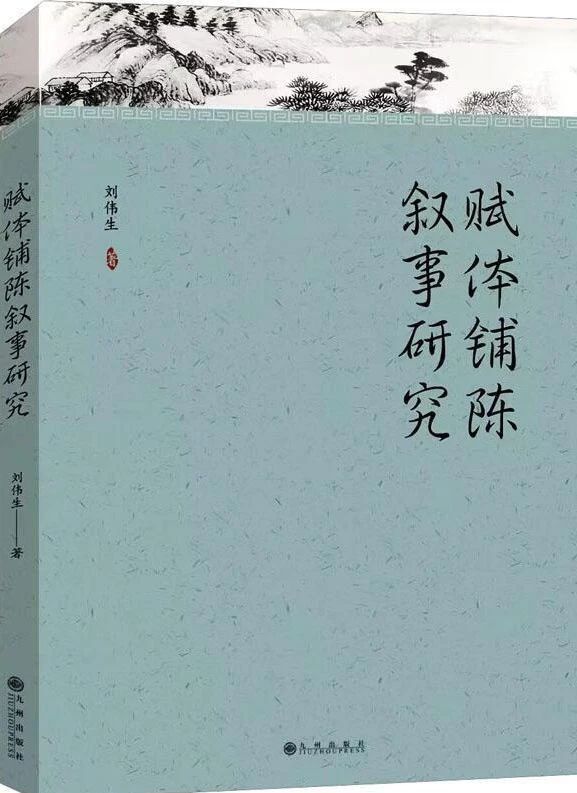 赋体铺陈
叙事研究
刘伟生
著
九州出版社
JIUZHOUPRESS
赋体铺陈叙事研究
刘伟生——著
九州出版社
JIUZHOUPRESS